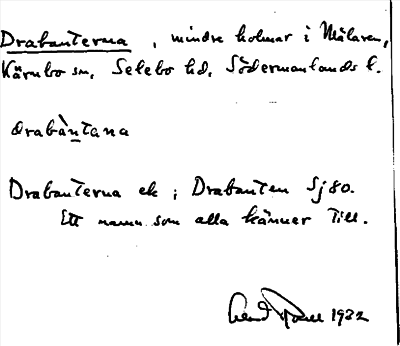 Drabanterna, mindre holmar i Mälaren,
Kärnbo sn, Selebo hd, Södermanlands l.
drabàntana
Drabanterna ek; Drabanten Sj80.
Ett namn som alla känner till.
1932